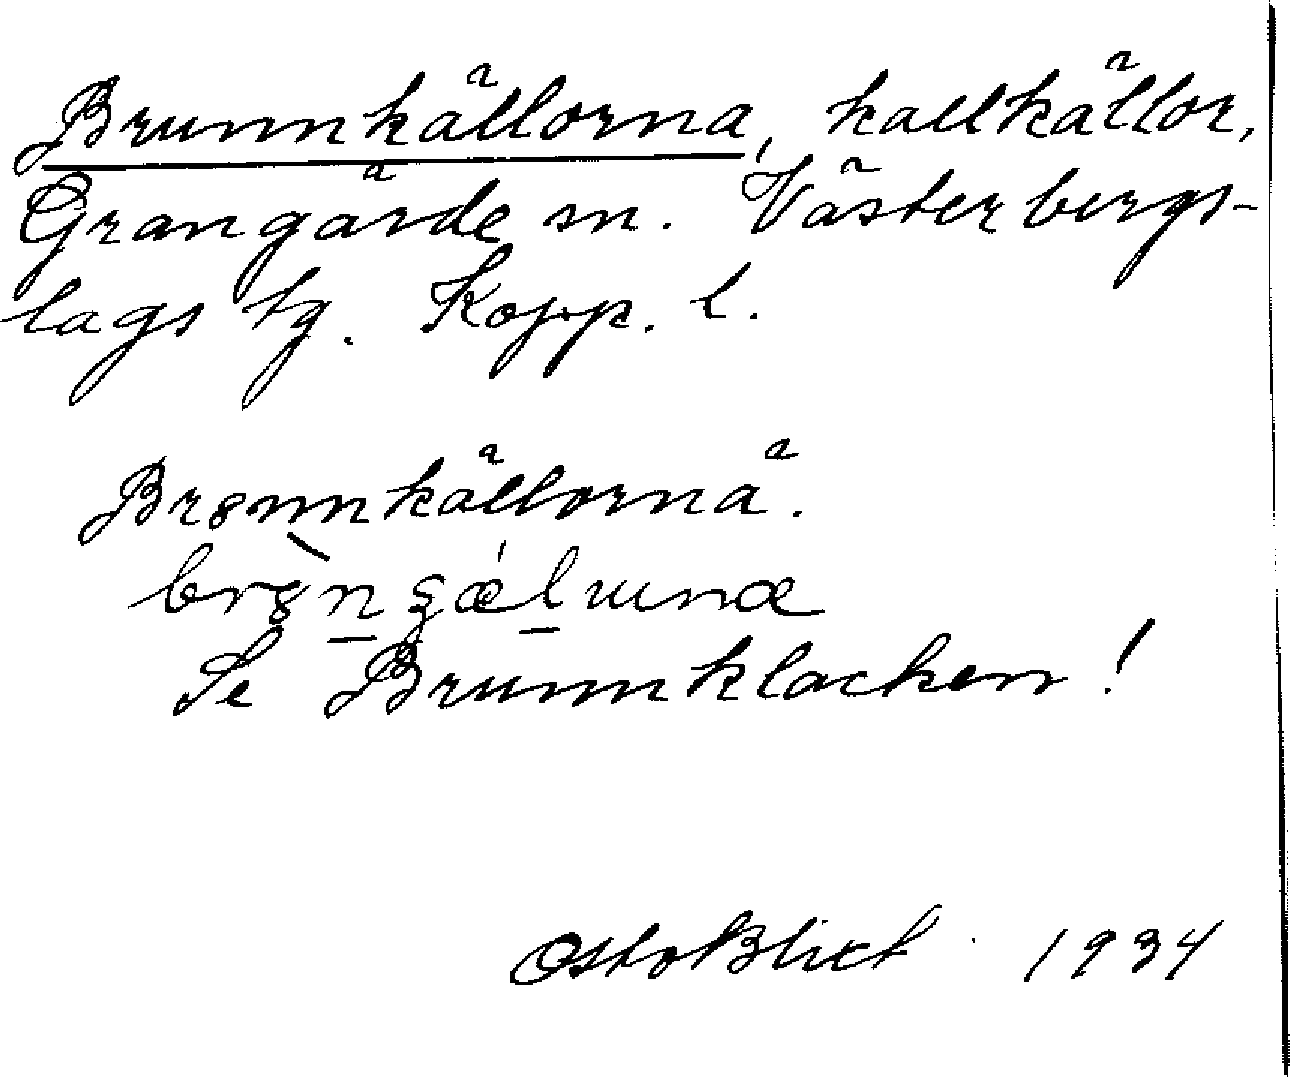 Brunnkällorna, kallkällor,
Grangärde sn. Västerbergs-
lags tg. Kopp. l.
Brennkällornä.
Se Brunnklacken!
Otto Blixt 1934